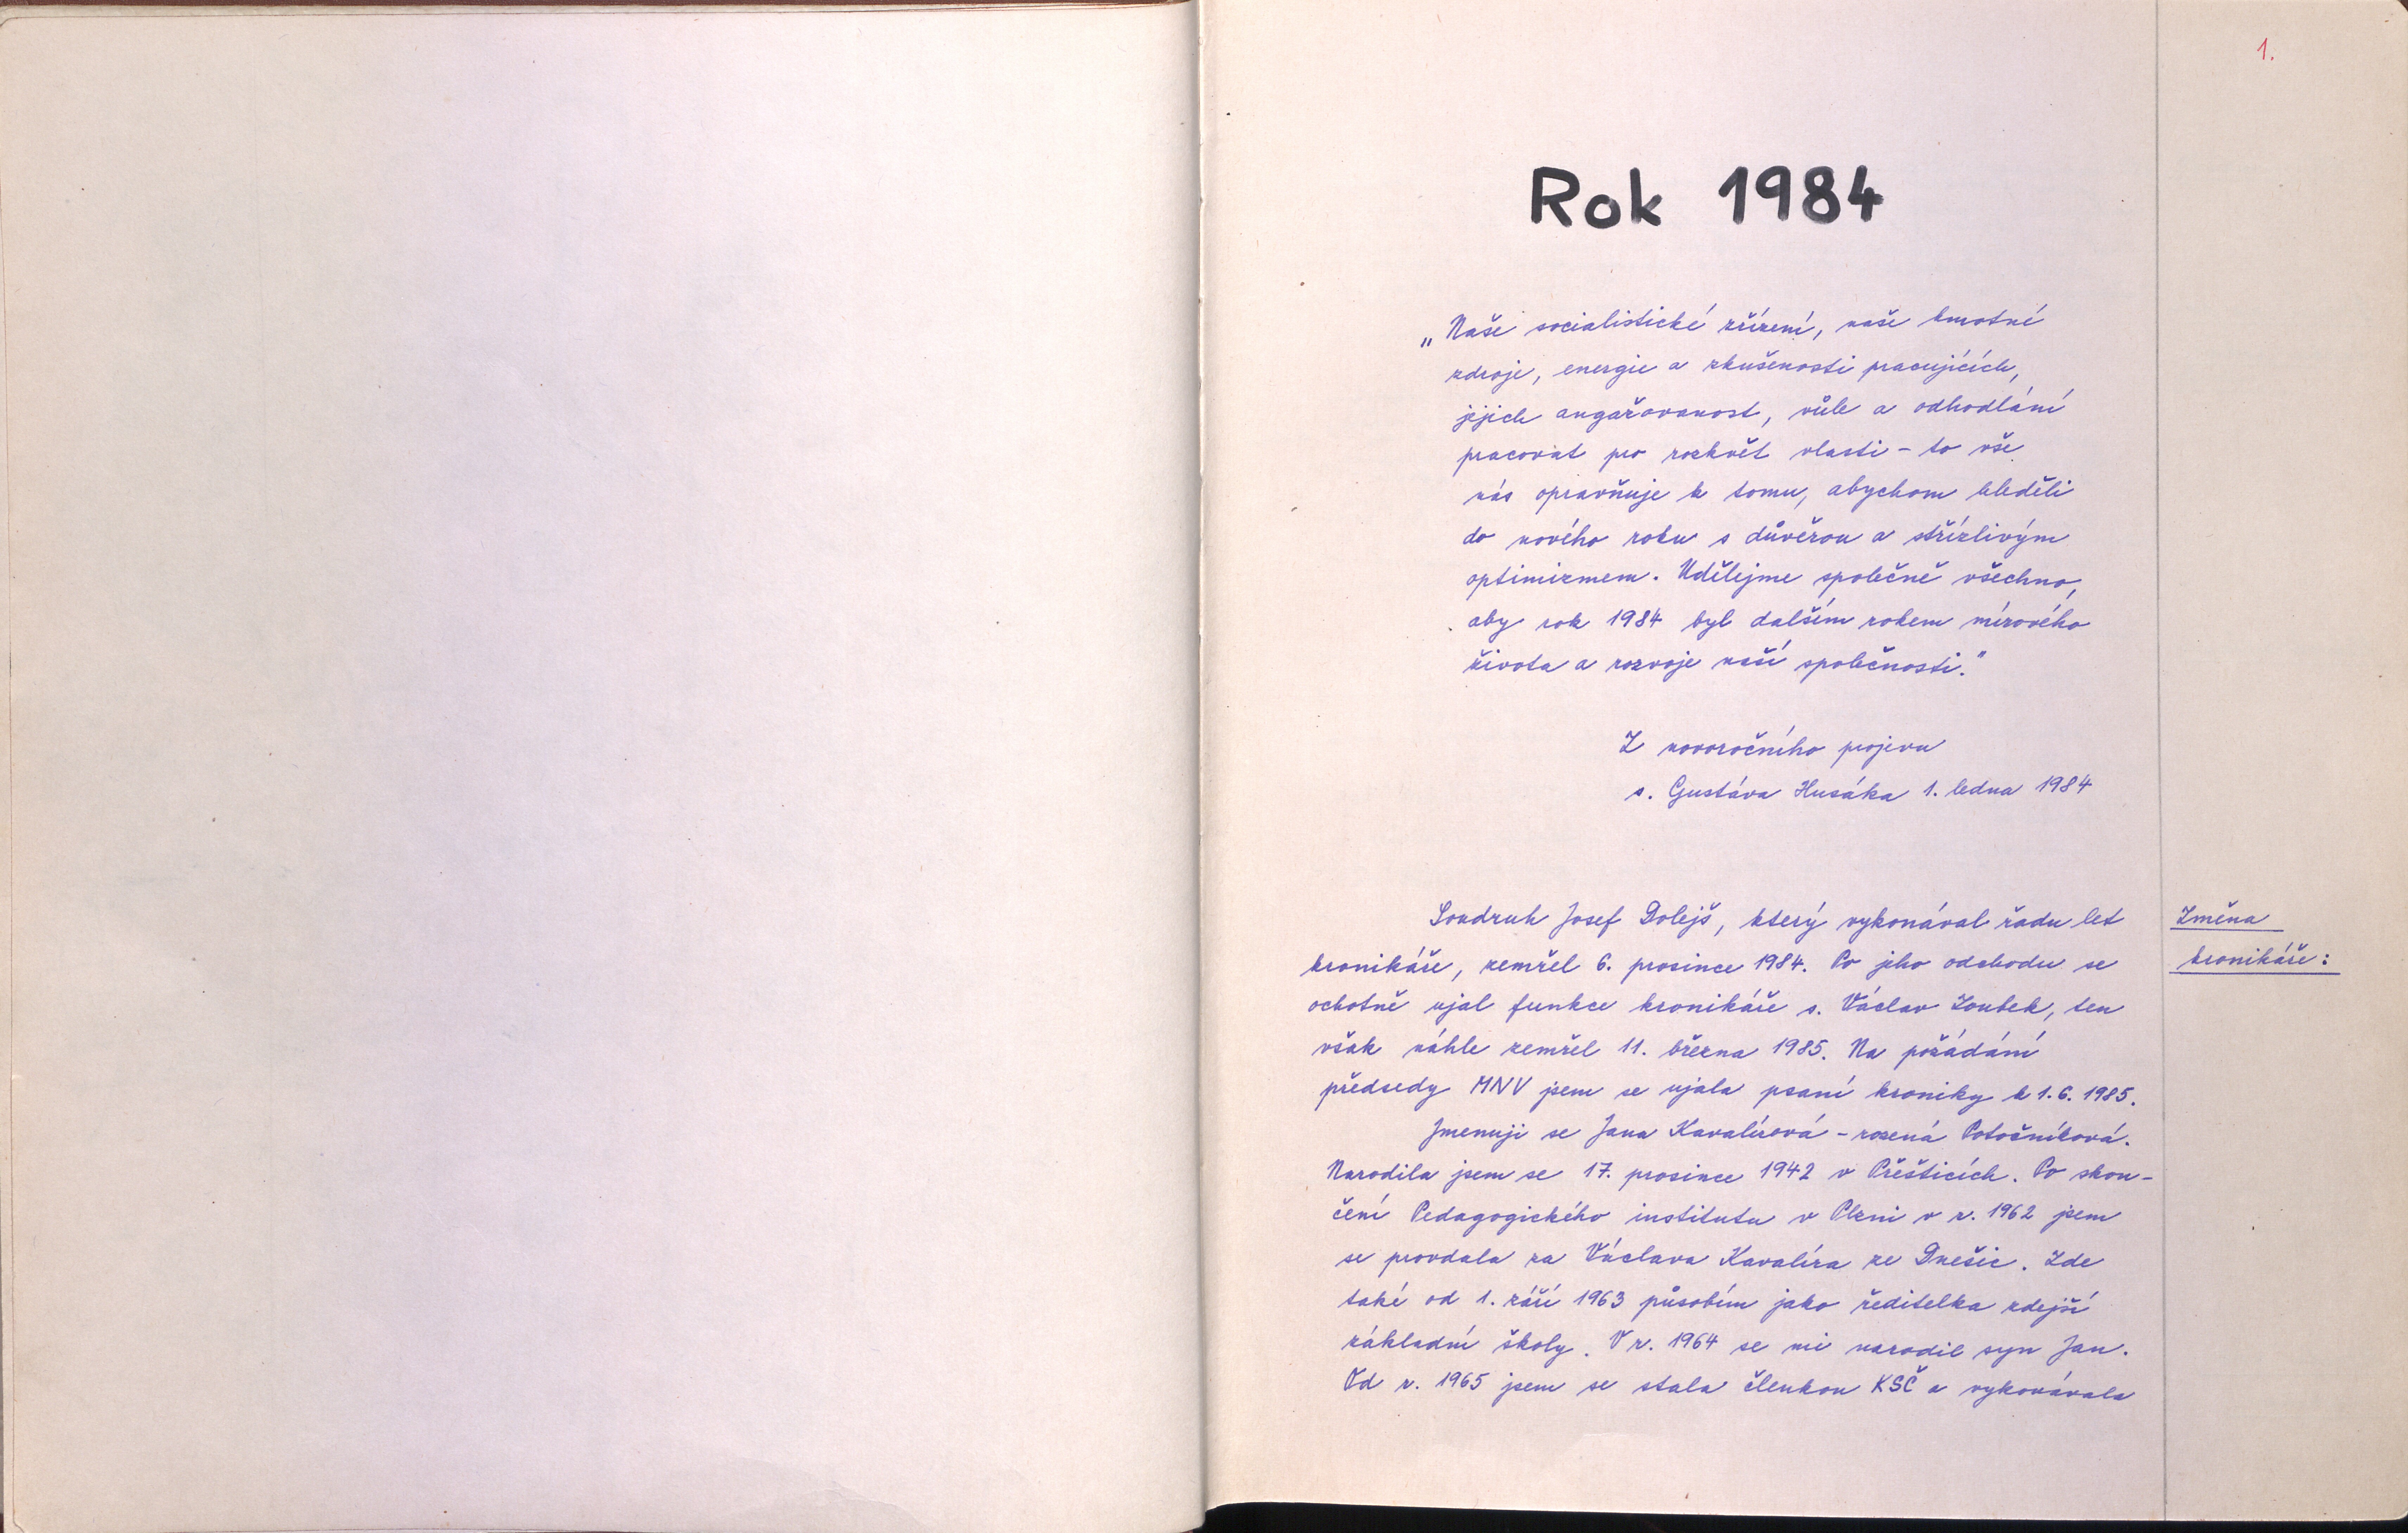 1.
Rok 1984
„Naše socialistické zřízení, naše hmotné
zdroje, energie a zkušenosti pracujících,
jejich angažovanost, vůle a odhodlání
pracovat pro rozkvět vlasti - to vše
nás opravňuje k tomu, abychom hleděli
do nového roku s důvěrou a střízlivým
optimizmem. Udělejme společně všechno,
aby rok 1984 byl dalším rokem mírového
života a rozvoje naší společnosti."
Z novoročního projevu
s. Gustáva Husáka 1. ledna 1984
Změna
kronikáře:
Soudruh Josef Dolejš, který vykonával řadu let
kronikáře, zemřel 6. prosince 1984. Po jeho odchodu se
ochotně ujal funkce kronikáře s. Václav Zoubek, ten
však náhle zemřel 11. března 1985. Na požádání
předsedy MNV jsem se ujala psaní kroniky k 1. 6. 1985.
Jmenuji se Jana Kavalírová - rozená Potočníková.
Narodila jsem se 17. prosince 1942 v Přešticích. Po skon-
čení Pedagogického institutu v Plzni v r. 1962 jsem
se provdala za Václava Kavalíra ze Dnešic. Zde
také od 1. září 1963 působím jako ředitelka zdejší
základní školy. V r. 1964 se mi narodil syn Jan.
Od r. 1965 jsem se stala členkou KSČ a vykonávala